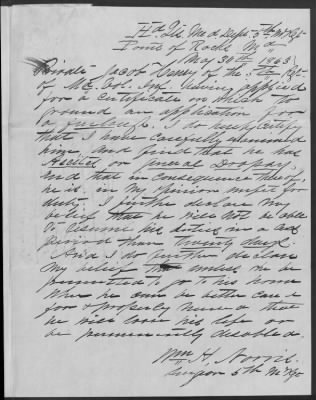 Hd Qts Med Dept. 5th Md Rgt
Point of Rocks Md
May 30th 1863
Private Jacob of the 5th Rgt
of Md Vol. Inf. having applied
for a certificate on which to
ground an application for
a furlough. I do hereby certify
that I have carefully examined
him and find that he has
Ascites or general Dropsy
and that in consequence thereof
he is in my opinion unfit for
duty. I further declare my
belief that he will not be able
to resume his duties in a less
period than twenty days
And I do further declare
my belief that unless he be
permitted to go to his home
where he can be better cared
for & properly nursed that
he will loose his life or
be permanently disabled.
Wm H. Norris
Surgeon 5th Md Rgt